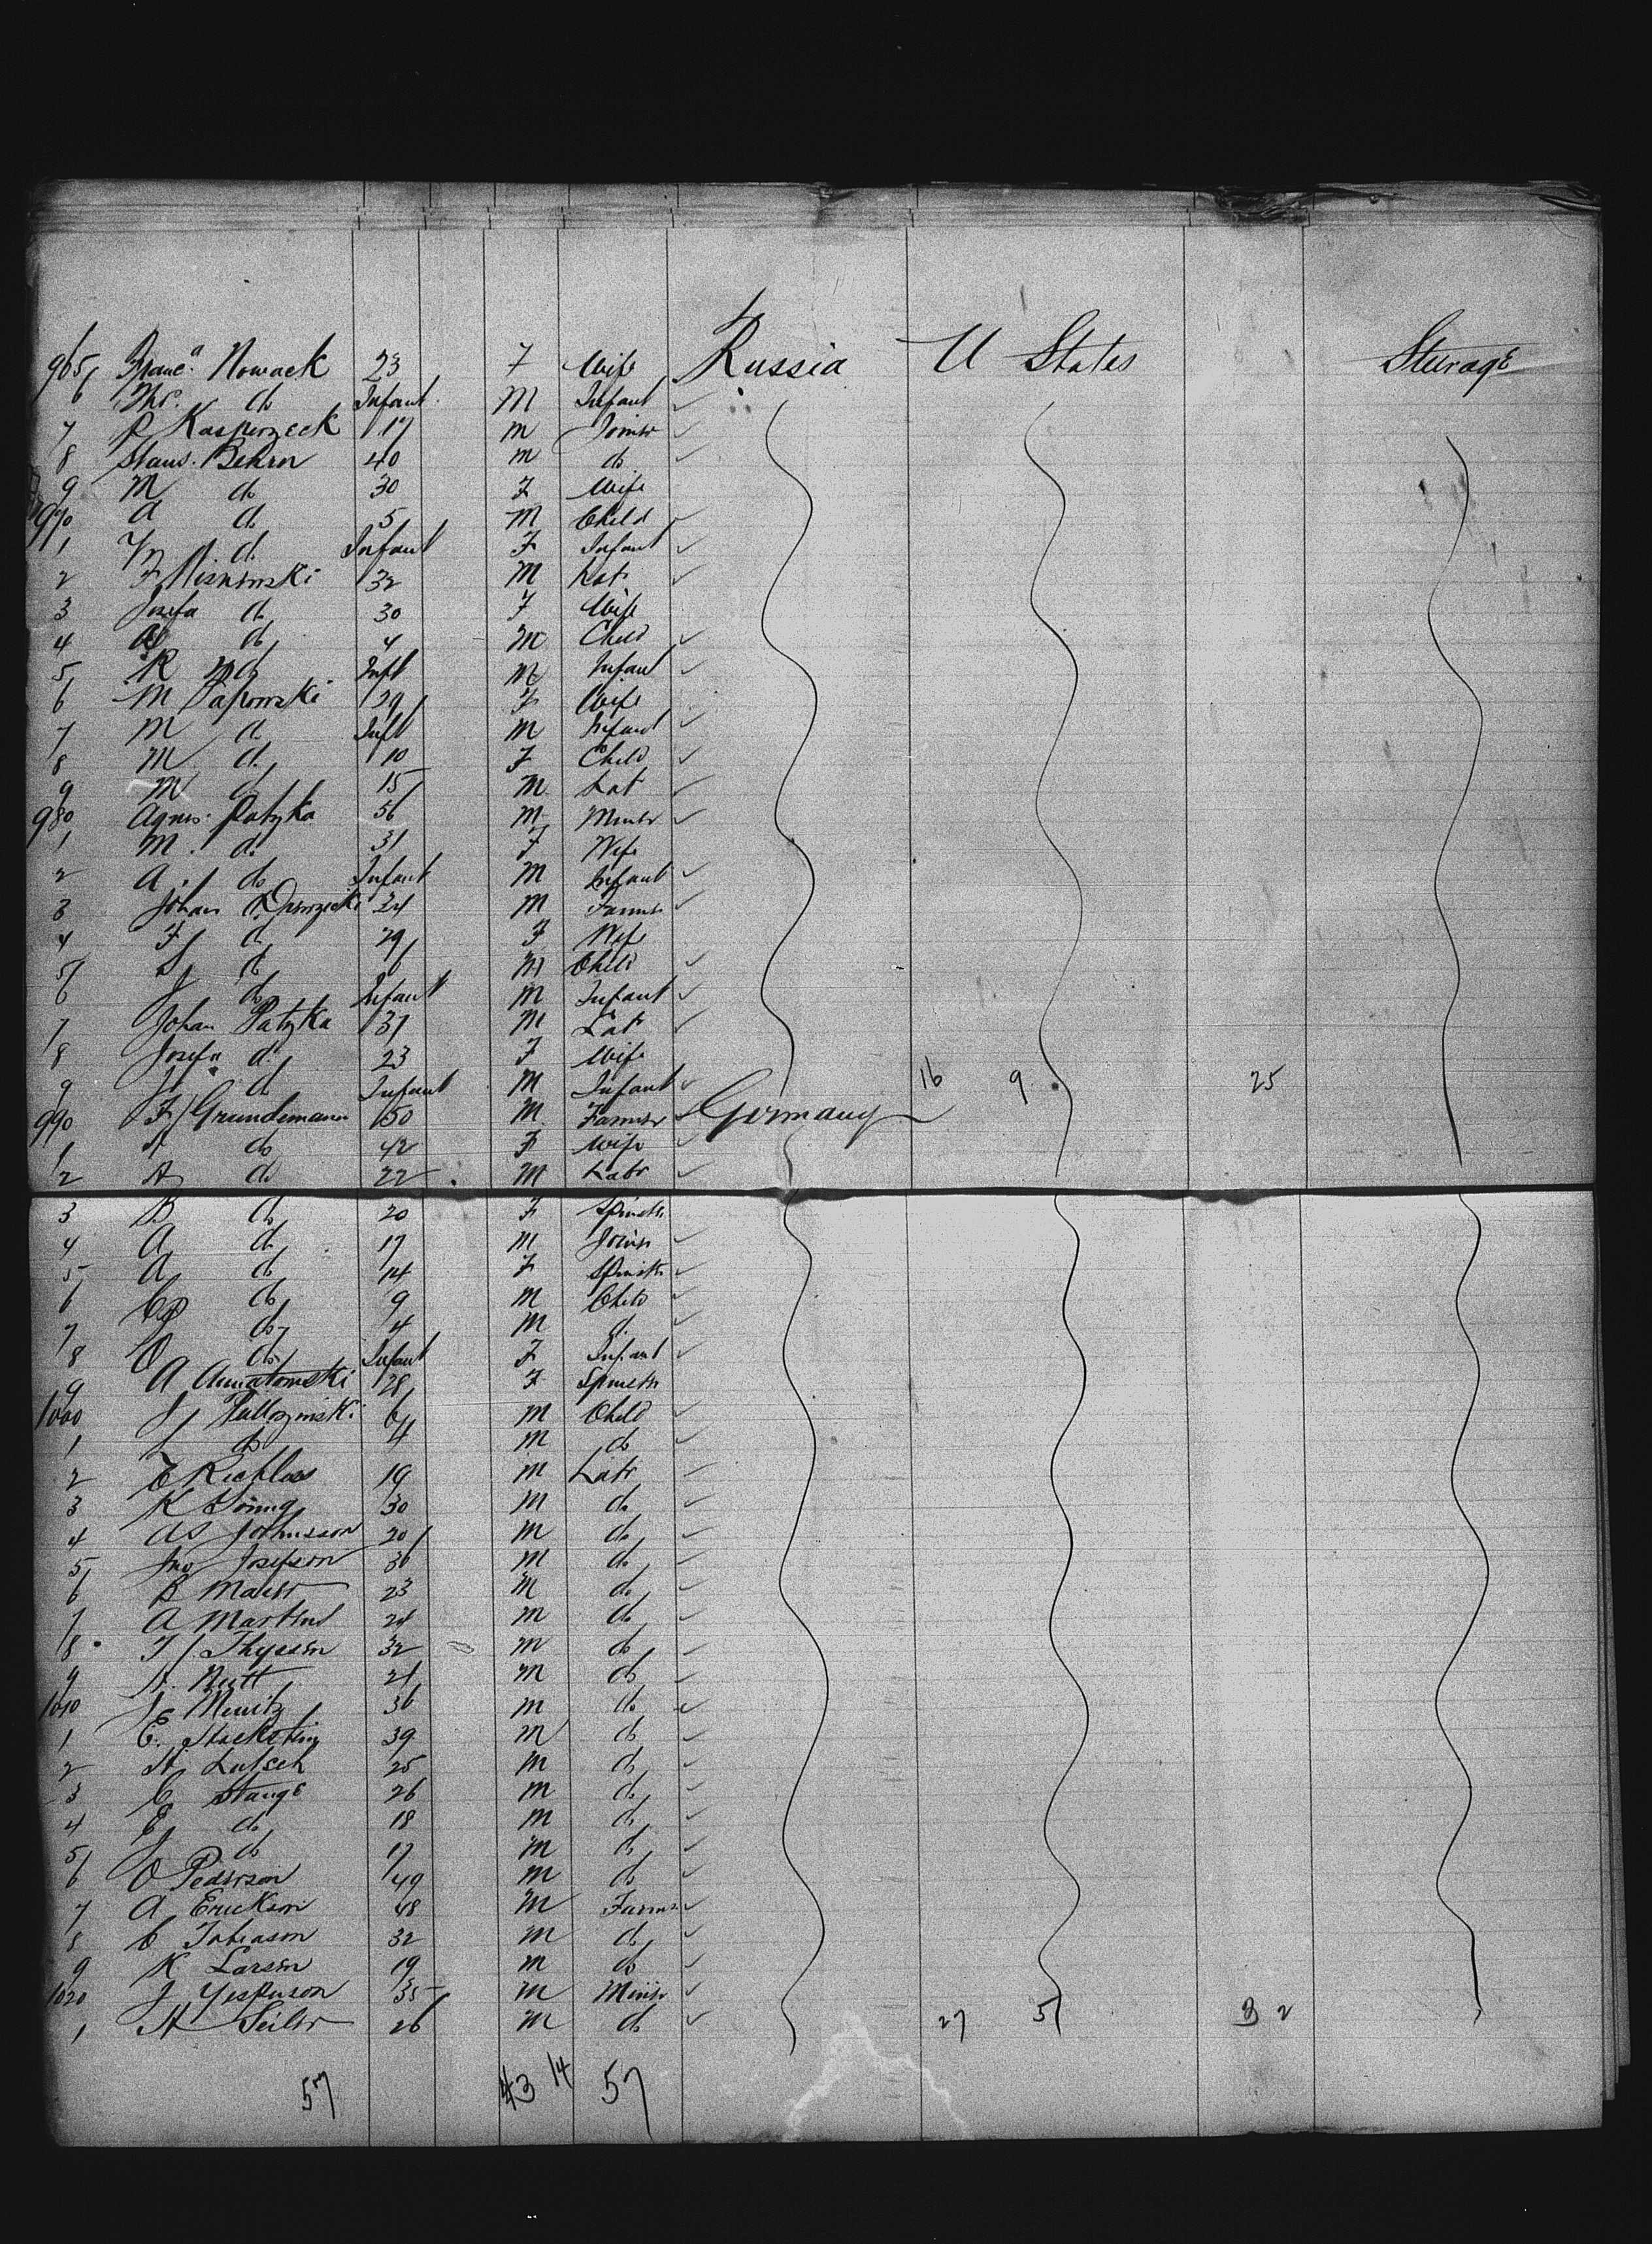 965 Franc.a Nowack 23 F Wife Russia U States Steerage
6 Thr. do Infant M Infant
7 P Kasperzeck 17 M Joiner
8 Staus. Behrn 40 m do
9 M do 30 F Wife
970 A do 5 M Child
1 M do Infant F Infant
2 F Misnewski 32 M Labr
3 Josefa do 30 F Wife
4 do 4 M Child
5 K do Inft M Infant
6 M Papowski 29 F Wife
7 M do Inft M Infant
8 M do 10 F Child
9 M d 15 M Lab
980 Agnes. Patzka 56 M Miner
1 M. do 31 F Wife
2 A. do Infant M Infant
3 Johan 24 M Farmer
4 F do 29 F Wife
5 do 6 M Child
6 J do Infant M Infant
7 Johan Patzka 31 M Labr
8 Josefa do 23 F Wife
9 J do Infant M Infant 16 9 25
990 F Grundemann 50 M Farmer Germany
1 A do 42 F Wife
2 A do 22 M Labr
3 B do 20 F Spinstr
4 A do 17 M Joinr
5 A do 14 F Spinstr
6 do 9 M Child
7 do 4 M d.
8 O do Infant F Infant
9 A Annatomski 28 F Spinstr
1000 J Pullozmski 6 M Child
1 do 4 M do
2 E Richloss 19 M Labr
3 K 30 M do
4 A S Johnsson 20 M do
5 Jno Josefson 36 M do
6 B Maier 23 M do
7 A Martens 24 M do
8 T J. Thyssen 32 M do
9 A. Nutt 21 M do
1010 J Muritz 36 M do
1 E. 39 M do
2 A. Lutsch 25 M do
3 C Stange 26 M do
4 E do 18 M do
5 J do 17 M do
6 O Pederson 49 M do
7 A Erickson 48 M Farmr
8 C Tobiason 32 M do
9 K Larsen 19 m do
1020 J Yesperson 35 M Miner
1 A Seiler 26 M do 27 5 32
57 43 14 57